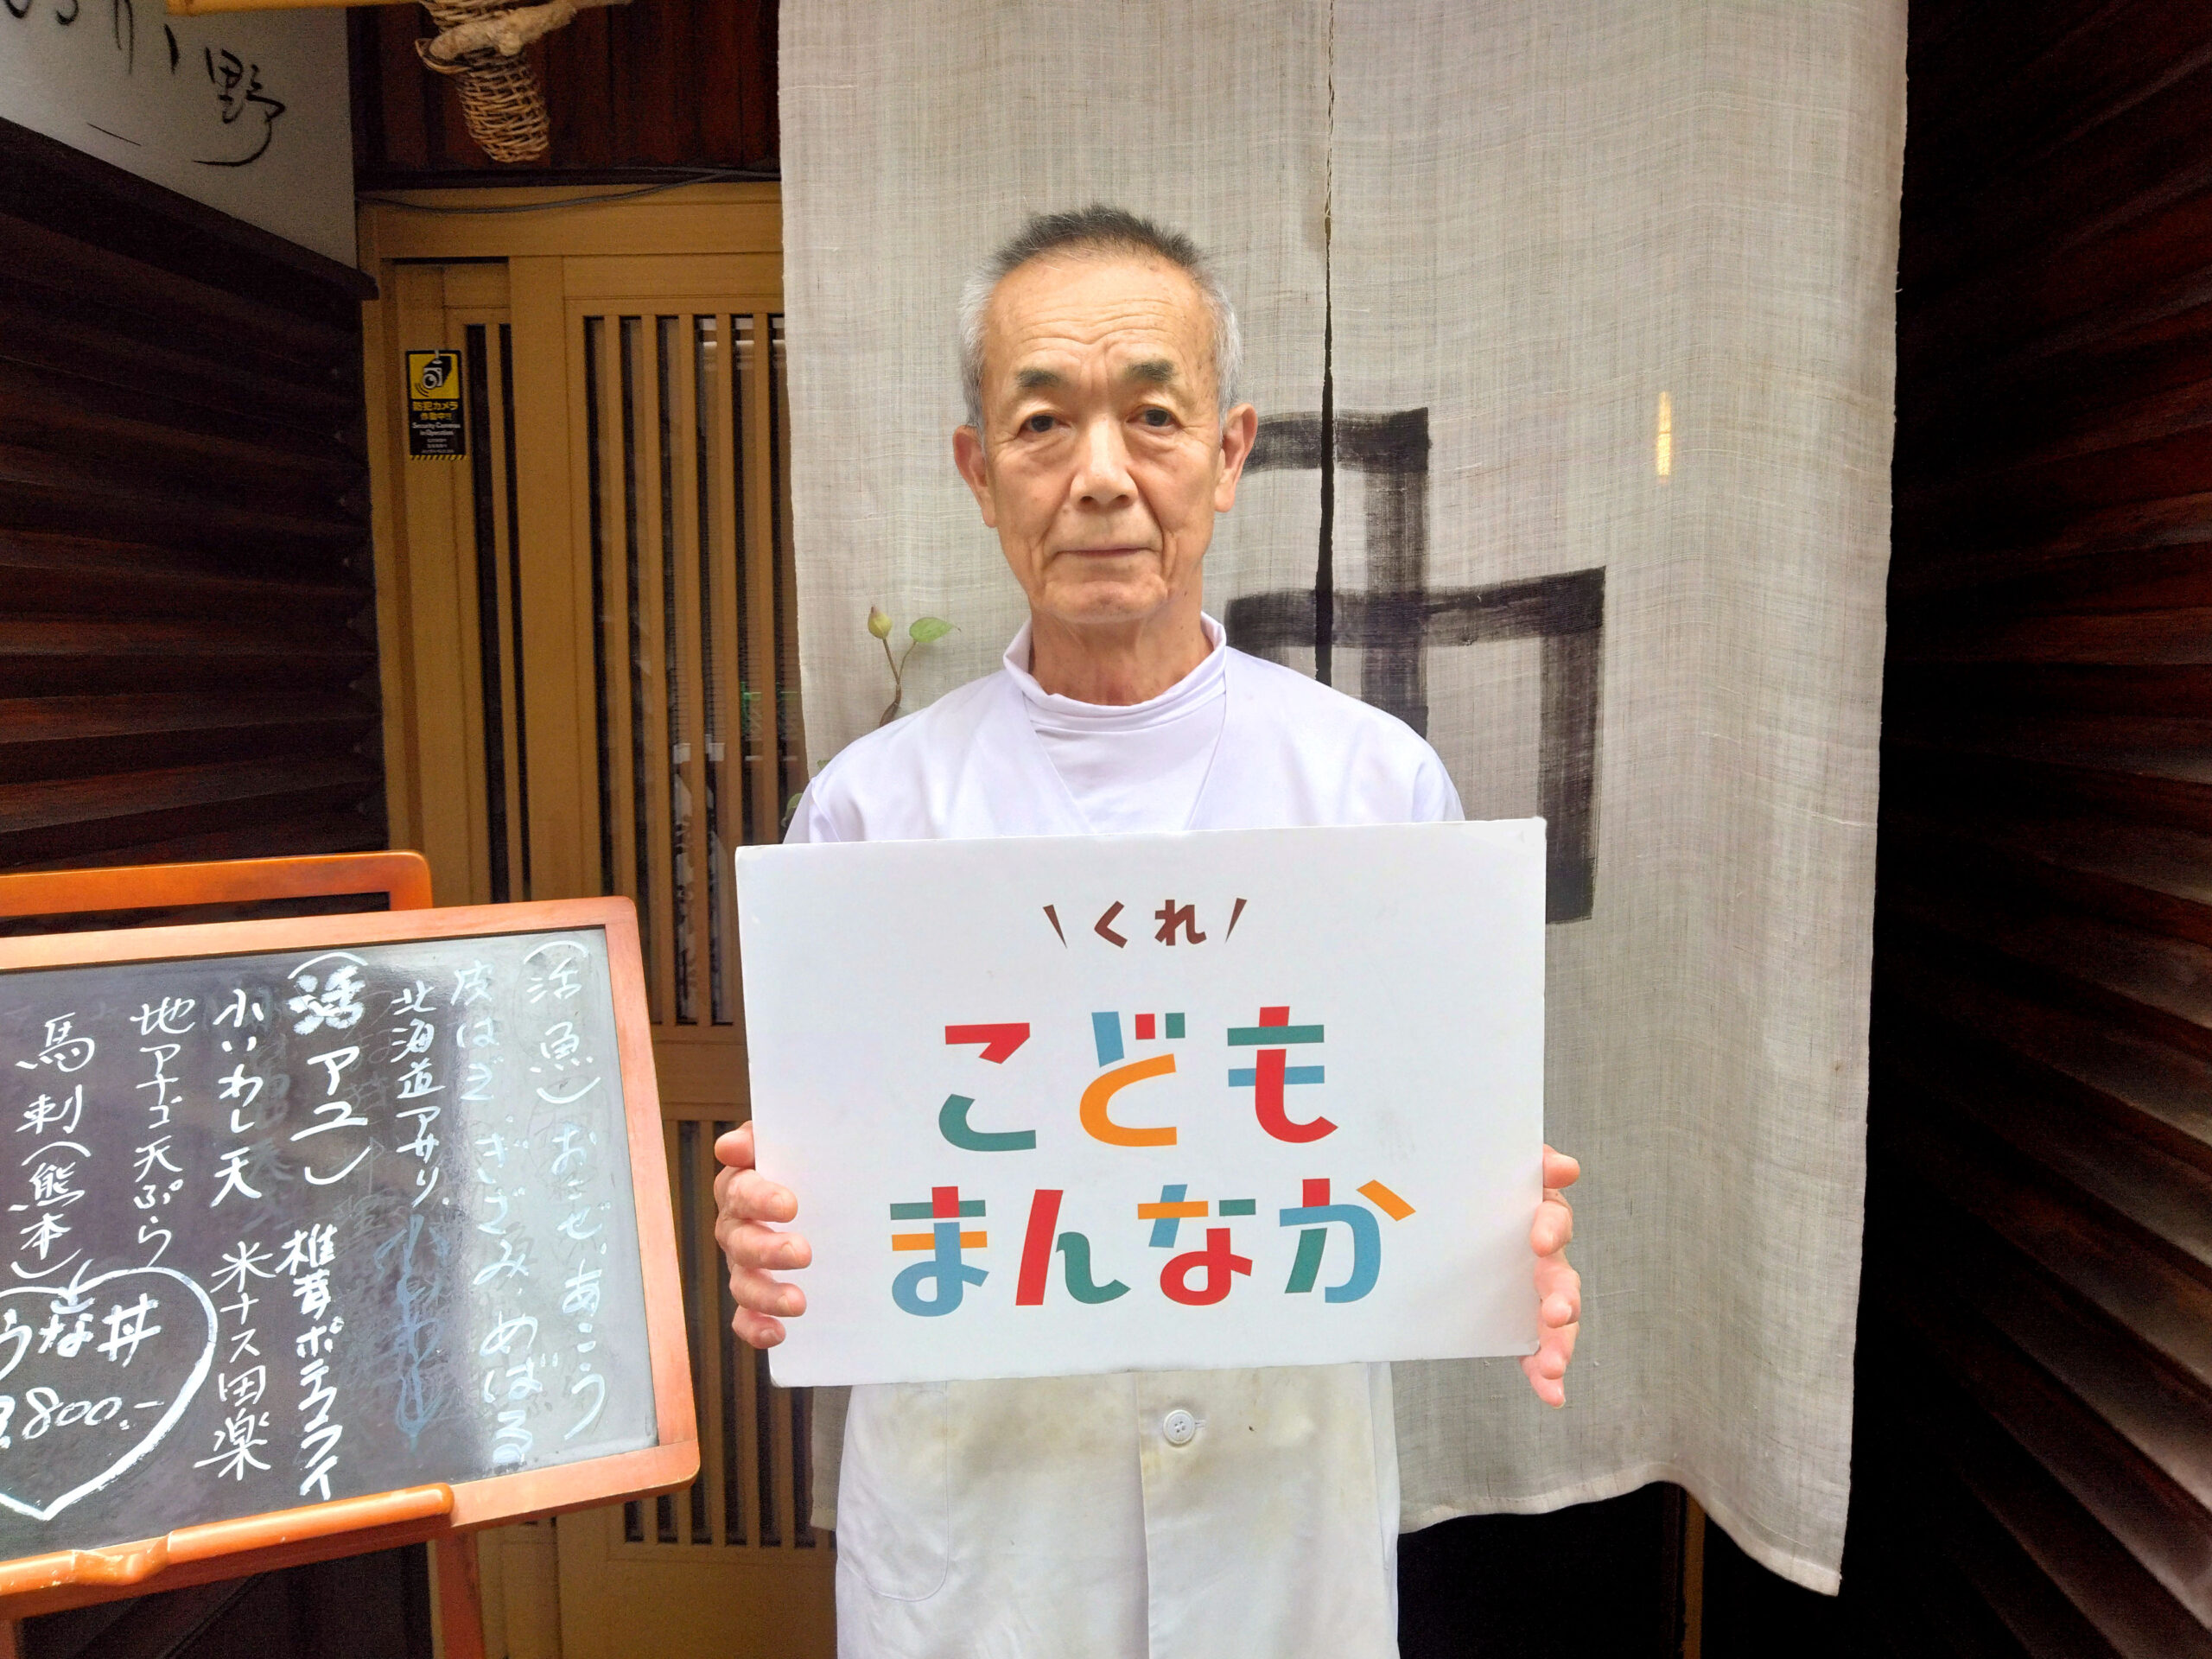 野
防犯カメラ
作動中!!
Security Cameras
in Operation
\くれ/
こども
まんなか
(活魚)おこぜ.あこう
皮はぎ.ぎざみ.めばる
北海道アサリ.
(活アユ) 椎茸ポテトフライ
小いわし天 米ナス田楽
地アナゴ天ぷら
馬刺(熊本)
うな丼
800.-